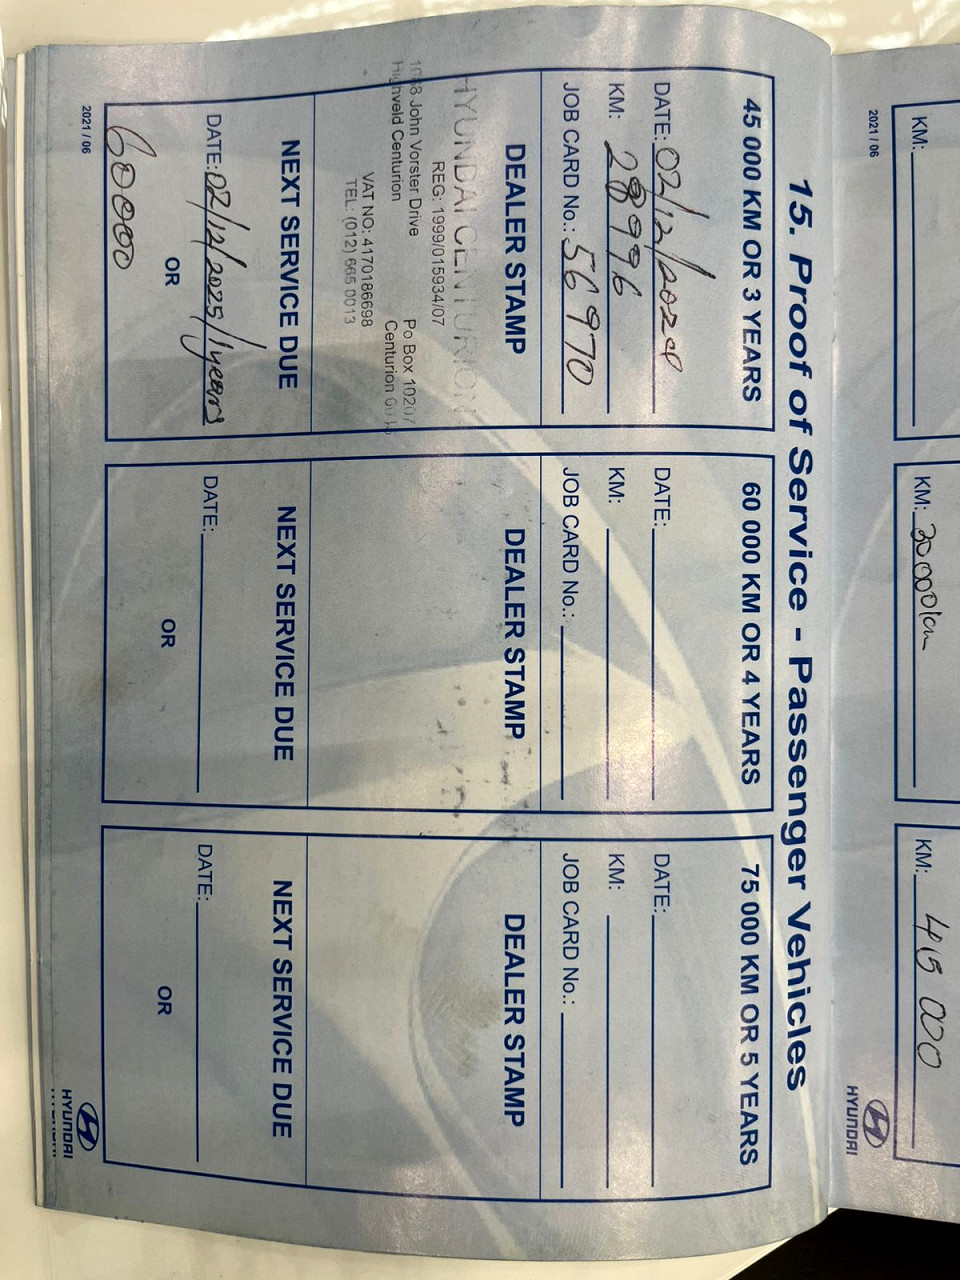 KM:
KM: 30 000km
KM: 45 000
2021 / 06
HYUNDAI
15. Proof of Service - Passenger Vehicles
45 000 KM OR 3 YEARS
DATE: 02/12/2024
KM: 28996
JOB CARD No.: 56970
DEALER STAMP
HYUNDAI CENTURION
REG: 1999/015934/07
John Vorster Drive Po Box 10207
Highveld Centurion Centurion
VAT NO: 4170186698
TEL: (012) 665 0013
NEXT SERVICE DUE
DATE: 02/12/2025/1years
OR
60000
60 000 KM OR 4 YEARS
DATE:
KM:
JOB CARD No.:
DEALER STAMP
NEXT SERVICE DUE
DATE:
OR
75 000 KM OR 5 YEARS
DATE:
KM:
JOB CARD No.:
DEALER STAMP
NEXT SERVICE DUE
DATE:
OR
2021 / 06
HYUNDAI